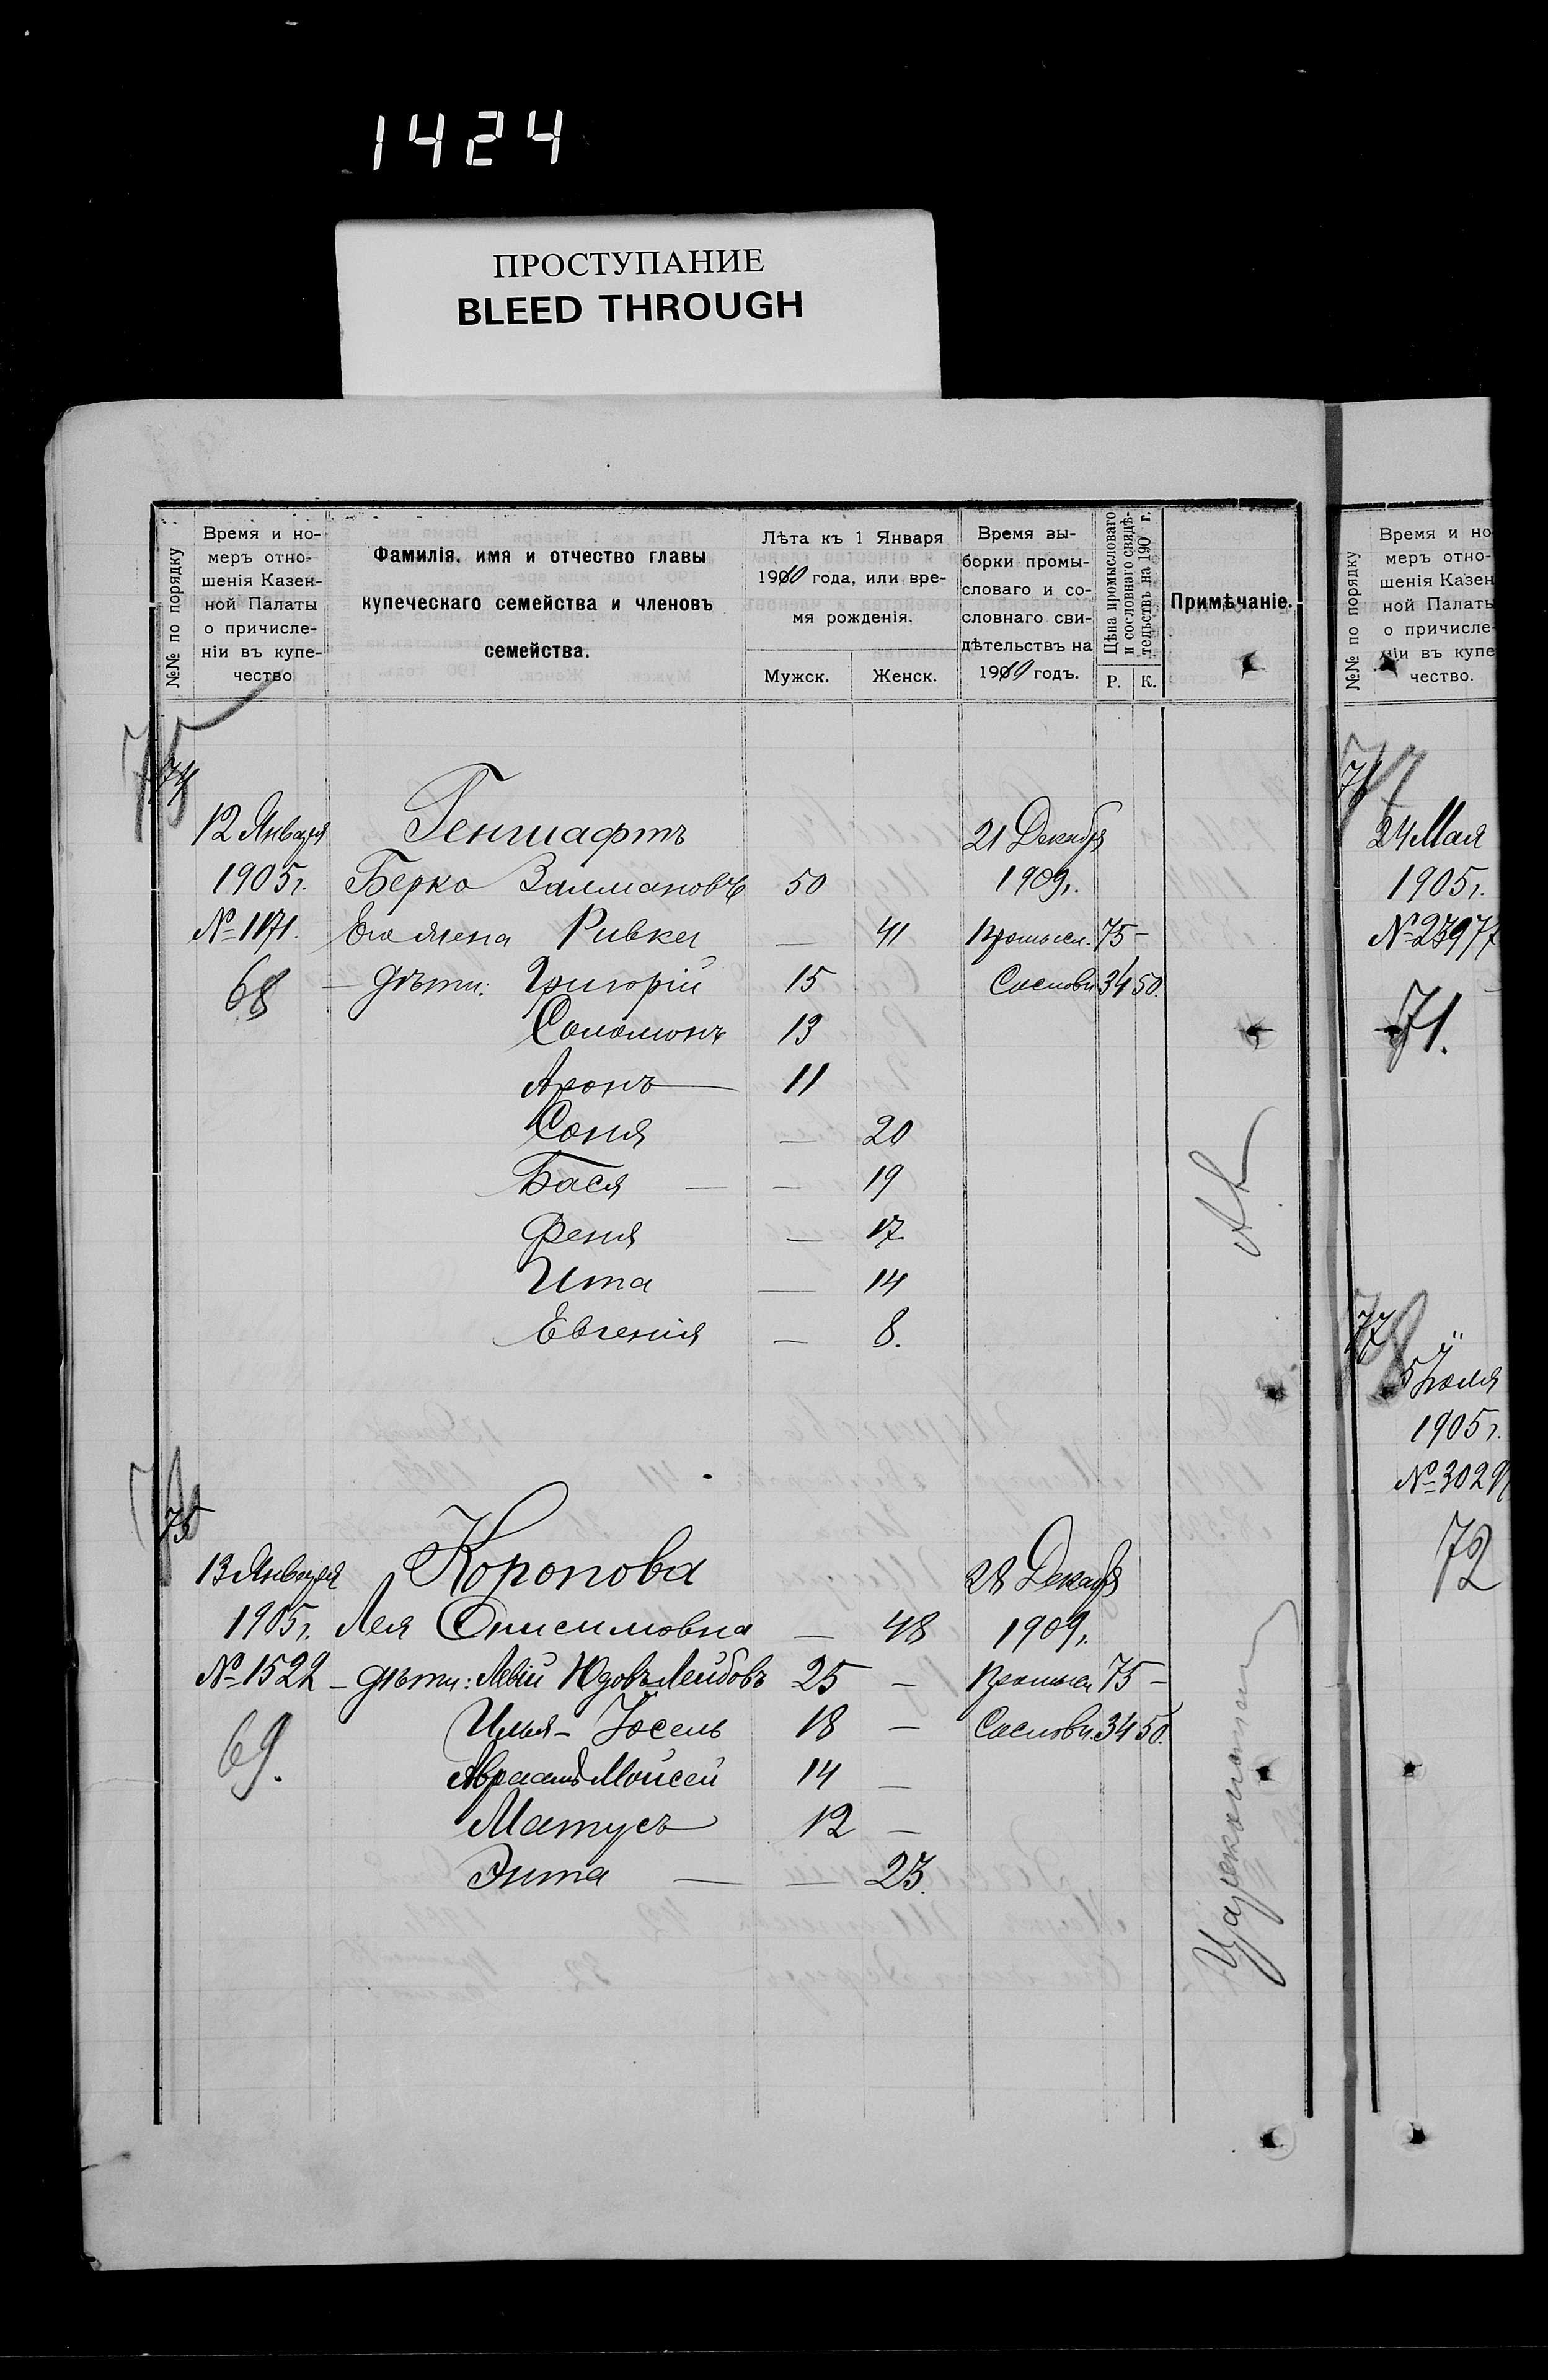 1424
ПРОСТУПАНИЕ
BLEED THROUGH
№№ по порядку
Время и но-
меръ отно-
шенія Казен-
ной Палаты
о причисле-
ніи въ купе-
чество
Фамилія, имя и отчество главы
купеческаго семейства и членовъ
семейства.
Лѣта къ 1 Января
1910 года, или вре-
мя рожденія.
Мужск.
Женск.
Время вы-
борки промы-
словаго и со-
словнаго сви-
дѣтельствъ на
1910 годъ.
Цѣна промысловаго
и сословнаго свидѣ-
тельствъ на 190 г.
Р. К.
Примѣчаніе.
75
74
12 Января Геншафтъ 21 Декабря
1905 г. Берко Залмановъ 50 1909 г.
№ 1171. Его жена Ривка — 41 Промысл. 75 —
68 — Дѣти: Григорій 15 Сословн. 34 50.
Соломонъ 13
Аронъ 11
Соня — 20
Бася — — 19
Феня — 17
Ита — 14
Евгенія — 8.
75
13 Января Коропова 28 Декабря
1905 г. Лея Онисимовна — 48 1909 г.
№ 1522 — Дѣти: Левій Юдовъ-Лейбовъ 25 — Промысл. 75 —
69. Илья-Іосель 18 — Сословн. 34 50.
Авраамъ Мойсей 14 —
Матусъ 12 —
Энта — — 23.
№№ по порядку
Время и но
меръ отно-
шенія Казен
ной Палаты
о причисле-
ніи въ купе
чество.
24 Мая
1905 г.
№ 23977
71.
77
5 Іюля
1905 г.
№ 3029
72